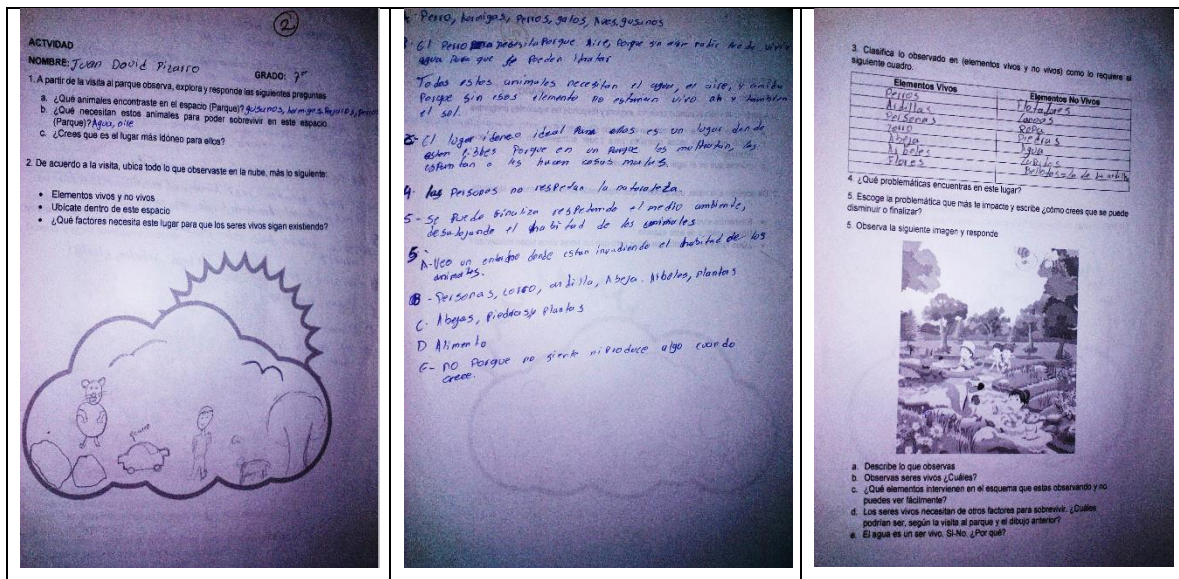 2
ACTVIDAD
NOMBRE: Juan David Pizarro
GRADO: 7°
1. A partir de la visita al parque observa, explora y responde las siguientes preguntas
a. ¿Qué animales encontraste en el espacio (Parque)? gusanos, hormigas,
b. ¿Qué necesitan estos animales para poder sobrevivir en este espacio
(Parque)? Agua, aire
c. ¿Crees que es el lugar más idóneo para ellos?
2. De acuerdo a la visita, ubica todo lo que observaste en la nube, más lo siguiente:
• Elementos vivos y no vivos
• Ubícate dentro de este espacio
• ¿Qué factores necesita este lugar para que los seres vivos sigan existiendo?
Perro, hormigas, perros, gatos, Aves, gusanos
El Perro necesita Porque Aire, Porque sin aire nadie
agua Para que se Pueden
Todos estos animales necesitan el agua, el aire, y
Porque sin esos elemento no
el sol.
El lugar ideal Para ellos es un lugar donde
esten libres Porque en un Parque los maltratan, los
o les hacen cosas malas.
4. las Personas no respetan la naturaleza.
5 - Se Puede finaliza respetando el medio ambiente,
desalojando el habitad de los animales
5
A - Veo un donde estan invadiendo el habitad de los
animales.
B - Personas, ardilla, Abeja. Arboles, plantas
C. Abejas, Piedras y Plantas
D Alimento
E - no Porque no siente ni Produce algo cuando
crece.
3. Clasifica lo observado en (elementos vivos y no vivos) como lo requiere el
siguiente cuadro.
Elementos Vivos Elementos No Vivos
Perros
Ardillas
Personas Ropa
Piedras
Abeja Agua
Arboles Zapatos
Flores
4. ¿Qué problemáticas encuentras en este lugar?
5. Escoge la problemática que más te impacte y escribe ¿cómo crees que se puede
disminuir o finalizar?
5. Observa la siguiente imagen y responde
a. Describe lo que observas
b. Observas seres vivos ¿Cuáles?
c. ¿Qué elementos intervienen en el esquema que estas observando y no
puedes ver fácilmente?
d. Los seres vivos necesitan de otros factores para sobrevivir. ¿Cuáles
podrían ser, según la visita al parque y el dibujo anterior?
e. El agua es un ser vivo. SI-No. ¿Por qué?